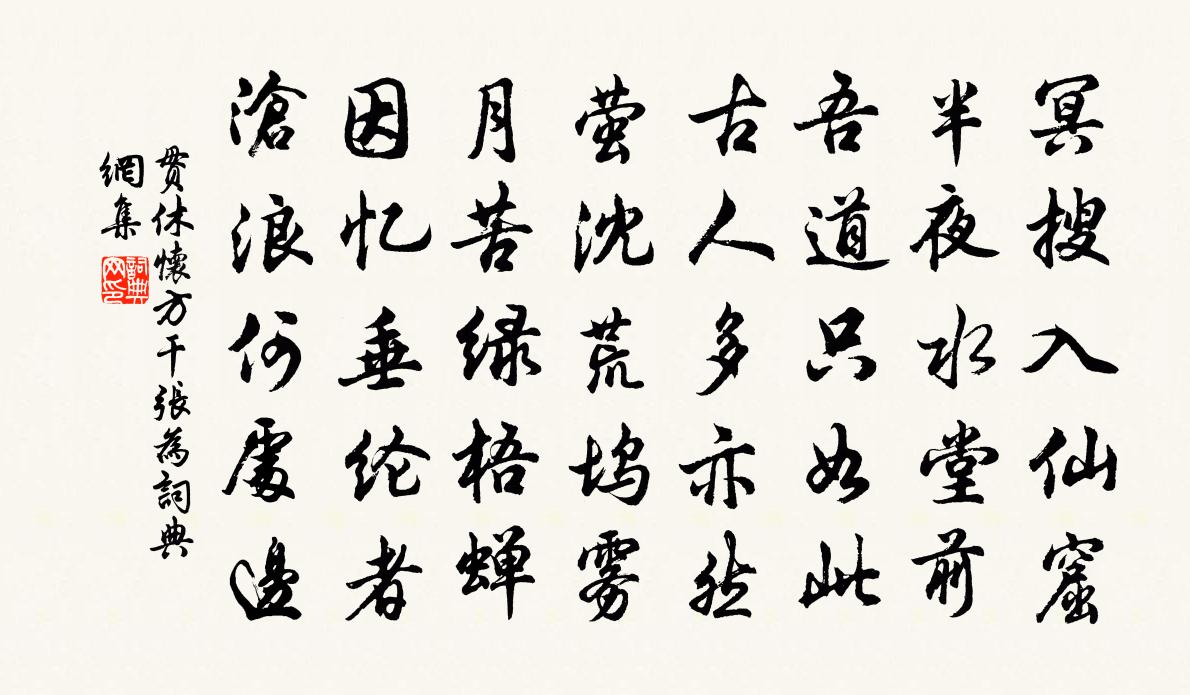 冥搜入仙窟
半夜水堂前
吾道只如此
古人多亦然
萤沈荒坞雾
月苦绿梧蝉
因忆垂纶者
滄浪何處邊
貫休懷方干張為詞典
網集
詞典
网印